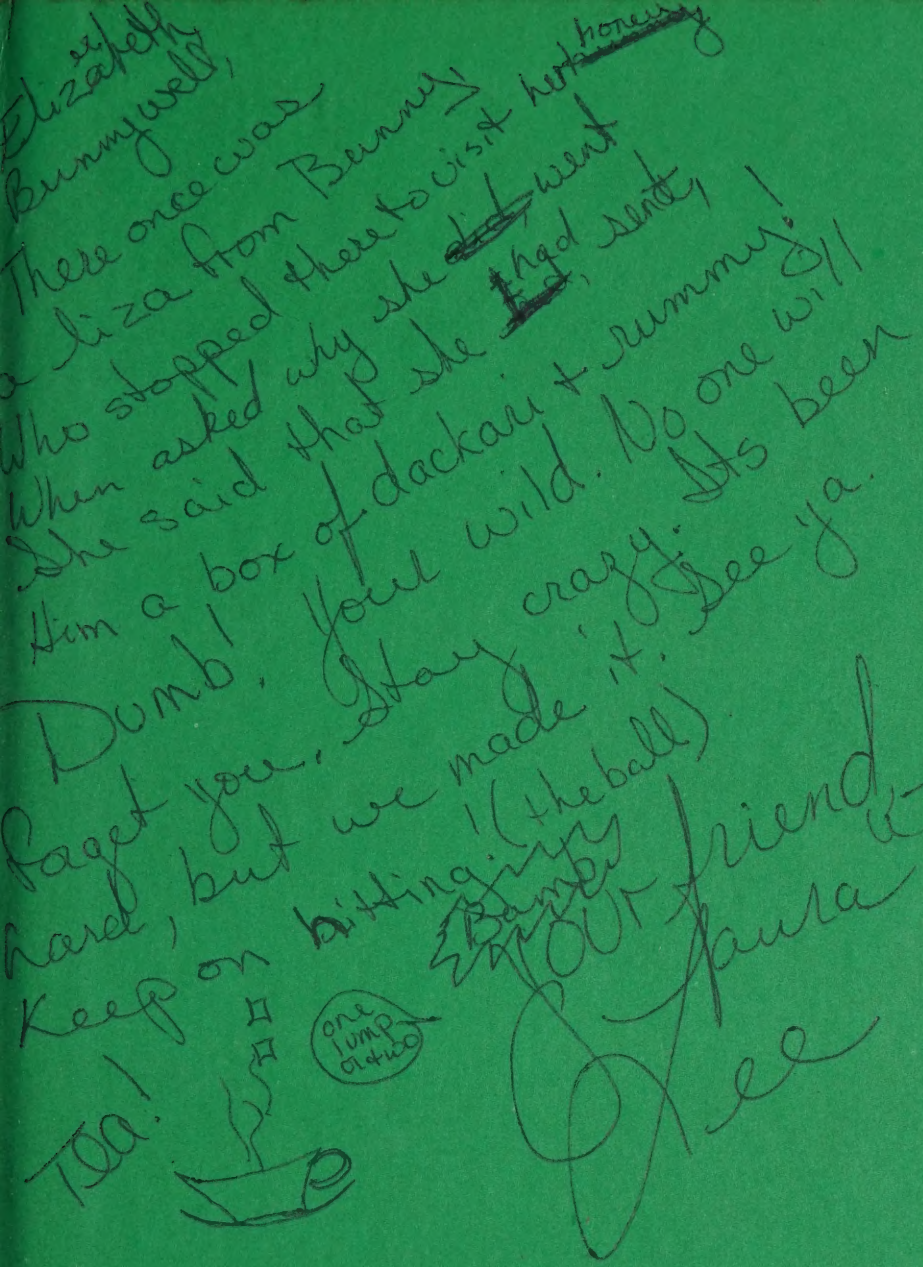 Elizabeth
Bunnywell,
There once was
a liza from Bunny,
Who stopped there to visit her honey
When asked why she did, went
She said that she had sent,
Him a box of dackari + rummy!
Dumb! Your wild. No one will
faget you. Stay crazy. Its been
hard, but we made it. See ya.
Keep on hitting! (the ball)
Bamb
Your friend,
Laura
Lee
one
lump
or two
Tea!